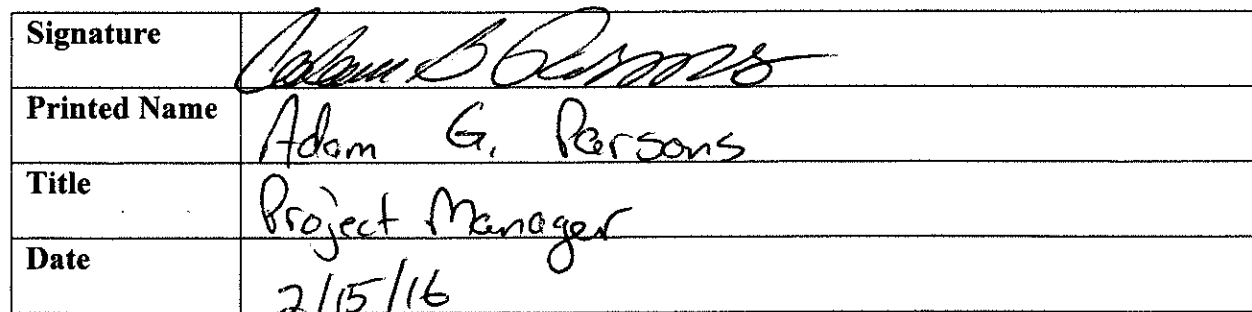 Signature Adam G Parsons
Printed Name Adam G. Parsons
Title Project Manager
Date 2/15/16